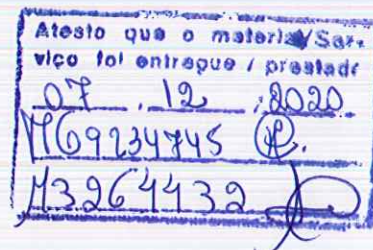 Atesto que o material/Ser-
viço foi entregue / prestado
07 . 12 . 2020
M69234745
M3264432